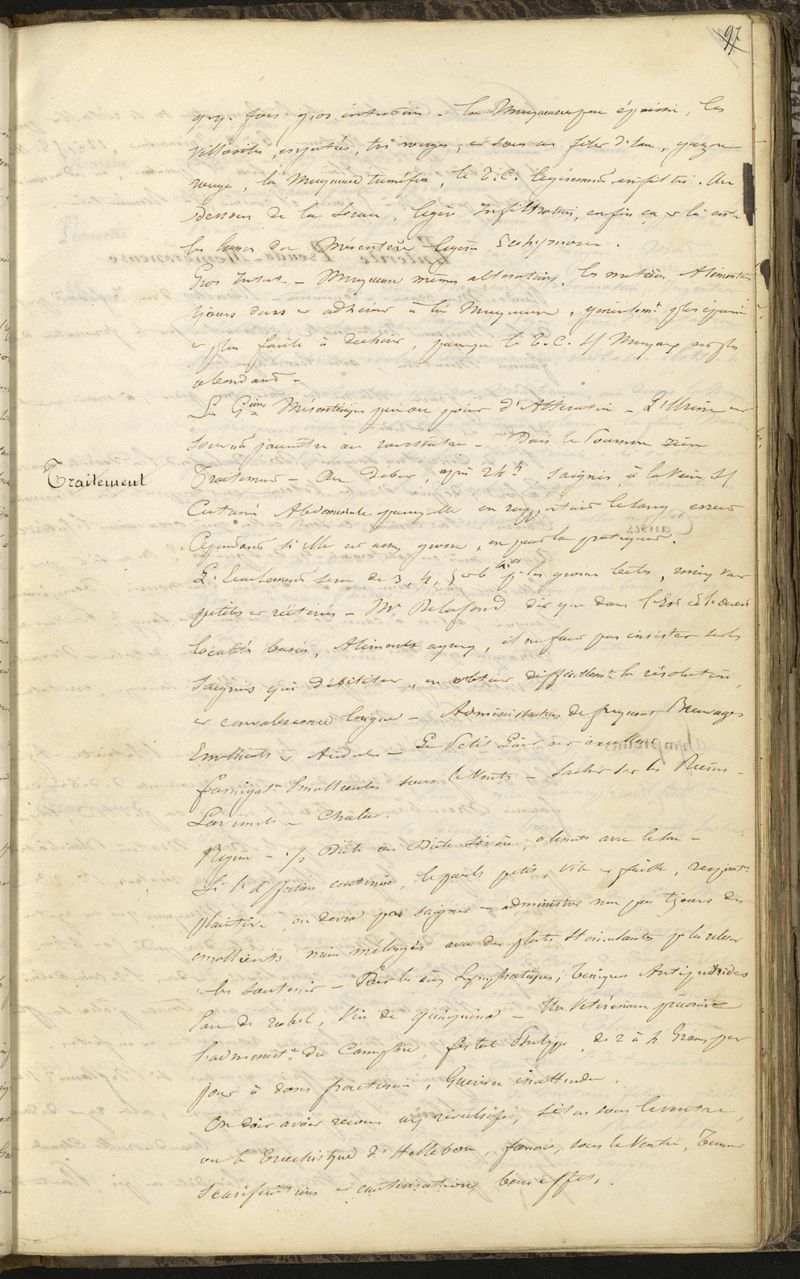 97
fois gros intestin. La Muqueuse peu épaissie, les
villosités injectées, très rouges, et sous un filet d'eau,
rouge, la Muqueuse tuméfiée, le T.C. légèrement infiltré. Au
dessous de la Séreuse, légère Infiltration, enfin çà et là entre
les lames du Mésentère légère Ecchymose.
Gros Intest. – Muqueuse mêmes altérations, les matières Alimentaires
tjours dures et adhèrent à la Muqueuse, plus épaissie
et plus facile à déchirer, parceque le T.C. s/ Muqueux est plus
abondant –
Les G.ions Mésentériques peu ou point d'Altération – L'Urine est
souvent jaunâtre ou roussâtre – Dans le Poumon rien
Traitement
Traitement – Au début, après 24 h, saignée à la Veine s/
Cutanée Abdominale parcequ'elle en rapportait le sang, erreur
Cependant si elle est assez grosse, on peut la pratiquer.
L'Ecoulement sera de 3, 4, 5 et 6 pr les grosses bêtes, mieux vaut
petites et réitérées – Mr Delafond dit que dans l'Est et l'Ouest
localités basses, Aliments aqueux, il ne faut pas insister sur les
saignées qui débilitent, on obtient difficilement la résolution,
et convalescence longue – Administration de fréquents Breuvages
Emollients et Acidules – Le Petit Lait est excellent
fumigat.n Emollientes sous le Ventre – Sachet sur les Reins –
Lavements – Chaleur.
Régime – 1/2 Diète ou Diète sévère, aliments avec le son –
Si l'affection continue, le pouls petit, vite et faible, respirat.n
plaintive, on devra pas saigner – administrer un peu tjours des
émollients mais mélangés avec des plantes stimulantes pr les relever
et les soutenir – Pour les Lymphatiques, Toniques Antiputrides
Eau de rabel, Vin de Quinquina – Un Vétérinaire préconise
l'administ.n du Camphre, de 2 à 4 Gram. par
jour à doses fractionnées, Guérison inattendue.
On doit avoir recours aux révulsifs, Séton sous le ventre,
ou le Trochisque d'Hellébore, sous le Ventre,
Scarifications et cautérisations, bons effets.